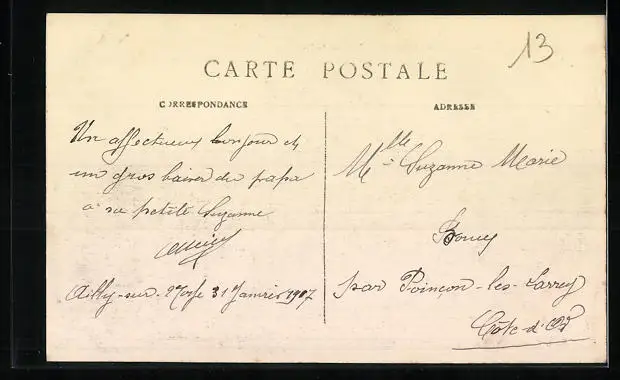 13
CARTE POSTALE
CORRESPONDANCE
ADRESSE
Un affectueux bonjour et
un gros baiser du papa
à sa petite Suzanne
Ailly-sur-Noye 31 Janvier 1907
Mlle Suzanne Marie
par Poinçon-les-Larrey
Côte-d'Or